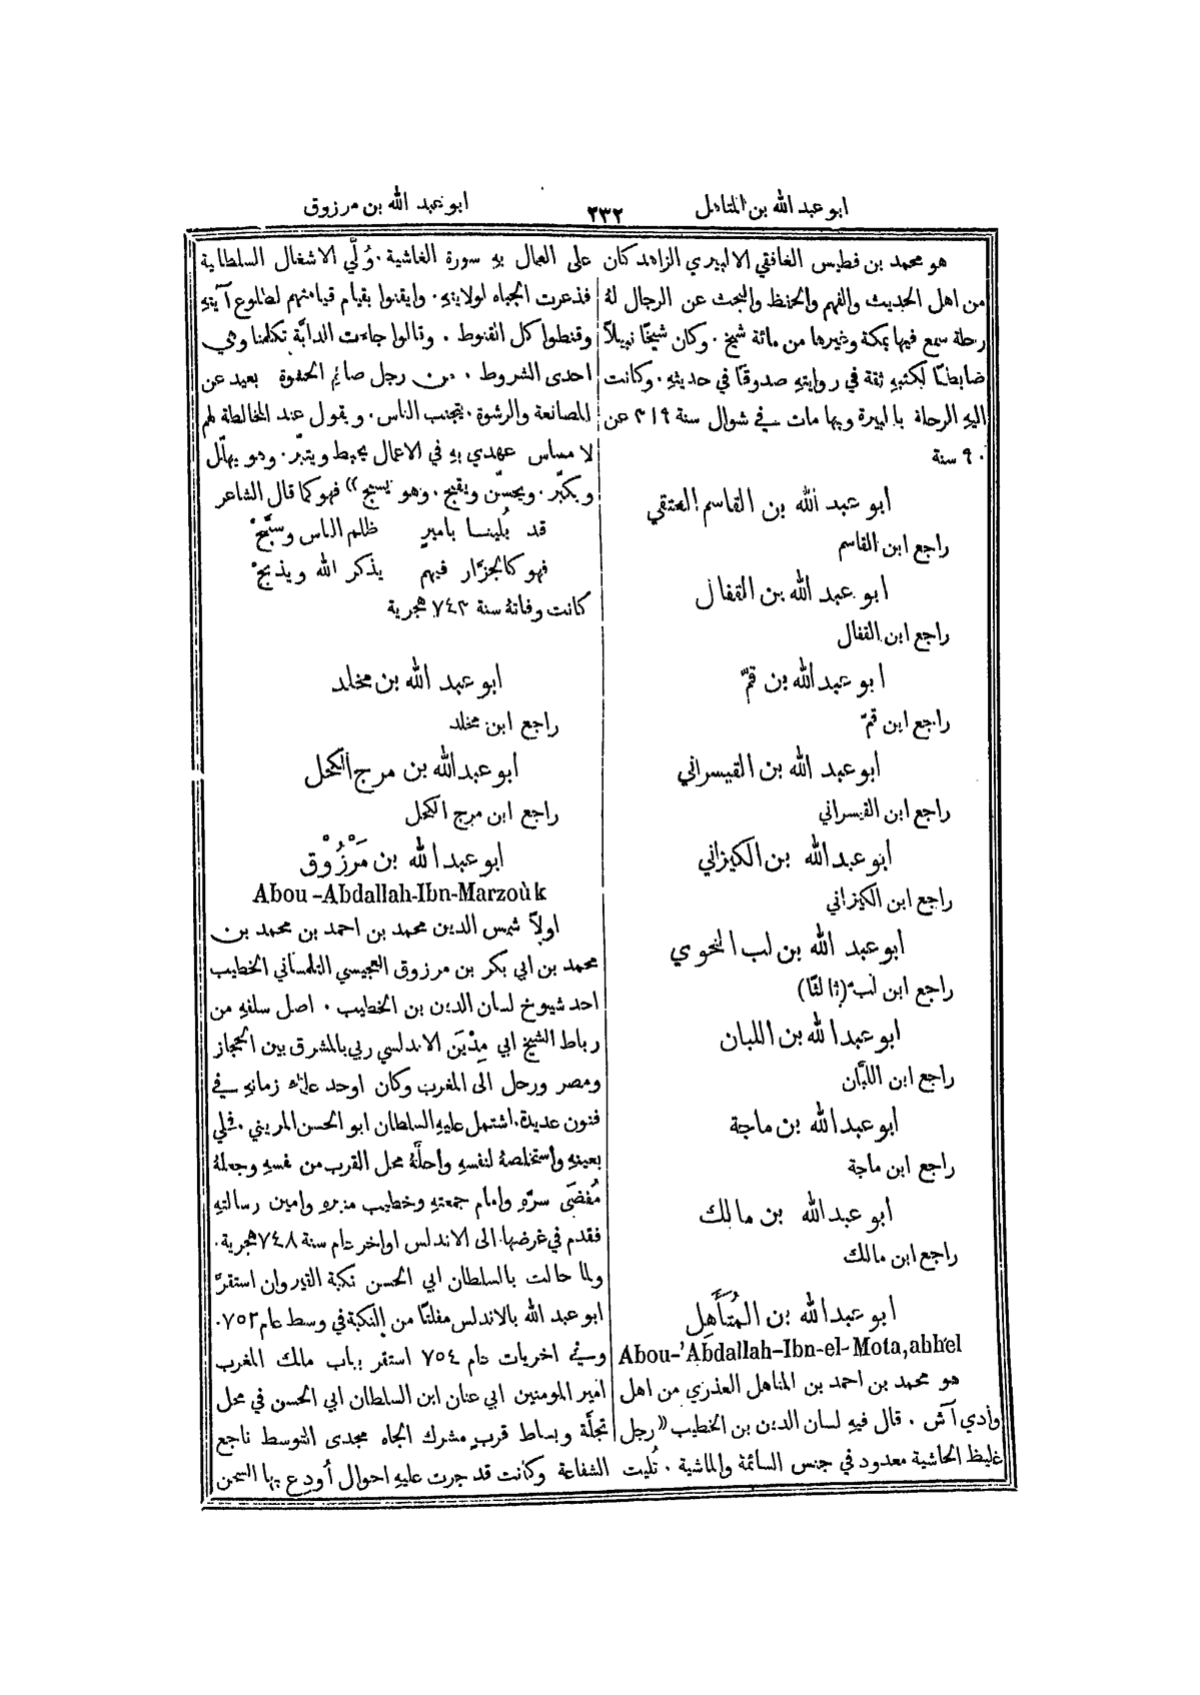 ابو عبد الله بن المتاهل
٢٣٢
ابو عبد الله بن مرزوق
هو محمد بن فطيس الغافقي الالبيري الزاهد كان
من اهل الحديث والفهم والحفظ والبحث عن الرجال لهُ
رحلة سمع فيها بمكة وغيرها من مائة شيخ . وكان شيخًا نبيلاً
ضابطًا لكتبهِ ثقة في روايتهِ صدوقًا في حديثهِ . وكانت
اليهِ الرحلة بالبيرة وبها مات في شوال سنة ٣١٩ عن
٩٠ سنة
ابو عبد الله بن القاسم العتقي
راجع ابن القاسم
ابو عبد الله بن القفال
راجع ابن القفال
ابو عبد الله بن قمّ
راجع ابن قمّ
ابو عبد الله بن القيسراني
راجع ابن القيسراني
ابو عبد الله بن الكيزاني
راجع ابن الكيزاني
ابو عبد الله بن لب النحوي
راجع ابن لب (ثالثًا)
ابو عبد الله بن اللبان
راجع ابن اللبَّان
ابو عبد الله بن ماجة
راجع ابن ماجة
ابو عبد الله بن مالك
راجع ابن مالك
ابو عبد الله بن المُتَأَهِل
Abou-'Abdallah-Ibn-el-Mota,ahhel
هو محمد بن احمد بن المتاهل العذري من اهل
وادي آش . قال فيهِ لسان الدين بن الخطيب «رجل
غليظ الحاشية معدود في جنس السائمة والماشية . تُليت
على العمال بهِ سورة الغاشية . وُلّي الاشغال السلطانية
فذعرت الجباه لولايتهِ . وايقنوا بقيام قيامتهم لطلوع آيتهِ
وقنطوا كل القنوط . وقالوا جاءت الدابَّة تكلمنا وهي
احدى الشروط . من رجل صائم الحشوة بعيد عن
المصانعة والرشوة . يتجنب الناس . ويقول عند المخالطة لهم
لا مساس عهدي بهِ في الاعمال يحبط ويتبّر . وهو يهلّل
ويكبّر . ويحسّن ويقبح . وهو يسبح» فهو كما قال الشاعر
قد بُلينا باميرٍ ظلم الناس وسبَّحْ
فهو كالجزَّار فيهم يذكر الله ويذبحْ
كانت وفاتهُ سنة ٧٤٣ هجرية
ابو عبد الله بن مخلد
راجع ابن مخلد
ابو عبد الله بن مرج الكحل
راجع ابن مرج الكحل
ابو عبد الله بن مَرْزُوْق
Abou-Abdallah-Ibn-Marzoùk
اولاً شمس الدين محمد بن احمد بن محمد بن
محمد بن ابي بكر بن مرزوق العجيسي التلمساني الخطيب
احد شيوخ لسان الدين بن الخطيب . اصل سلفهِ من
رباط الشيخ ابي مِدْيَن الاندلسي ربي بالمشرق بين الحجاز
ومصر ورحل الى المغرب وكان اوحد علماء زمانهِ في
فنون عديدة . اشتمل عليهِ السلطان ابو الحسن المريني . فلي
بعينهِ واستخلصهُ لنفسهِ واحلَّهُ محل القرب من نفسهِ وجعلهُ
مُفضَى سرّهِ وامام جمعتهِ وخطيب منبره وامين رسالتهِ
فقدم في غرضها الى الاندلس اواخر عام سنة ٧٤٨ هجرية .
ولما حالت بالسلطان ابي الحسن نكبة القيروان استقرَّ
ابو عبد الله بالاندلس مفلتًا من النكبة في وسط عام ٧٥٢ .
وفي اخريات عام ٧٥٤ استقر بباب مالك المغرب
امير المومنين ابي عنان ابن السلطان ابي الحسن في محل
تجلَّة وبساط قربٍ مشرك الجاه مجدى التوسط ناجع
الشفاعة وكانت قد جرت عليهِ احوال أودع بها السجن